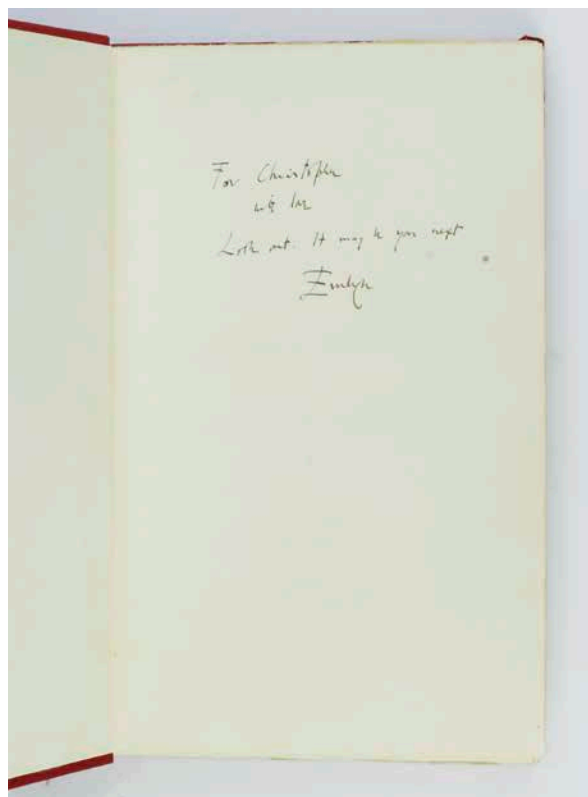 For Christopher
with love
Look out. It may be you next
Evelyn